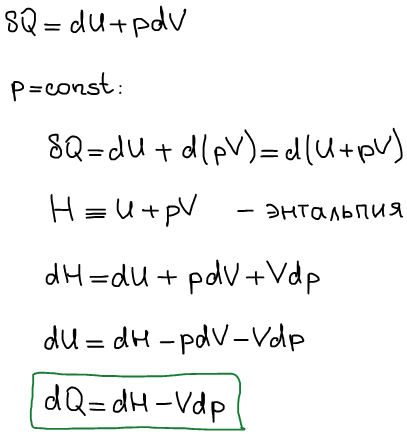 δQ = dU + pdV
p = const:
δQ = dU + d(pV) = d(U + pV)
H ≡ U + pV – энтальпия
dH = dU + pdV + Vdp
dU = dH – pdV – Vdp
dQ = dH – Vdp